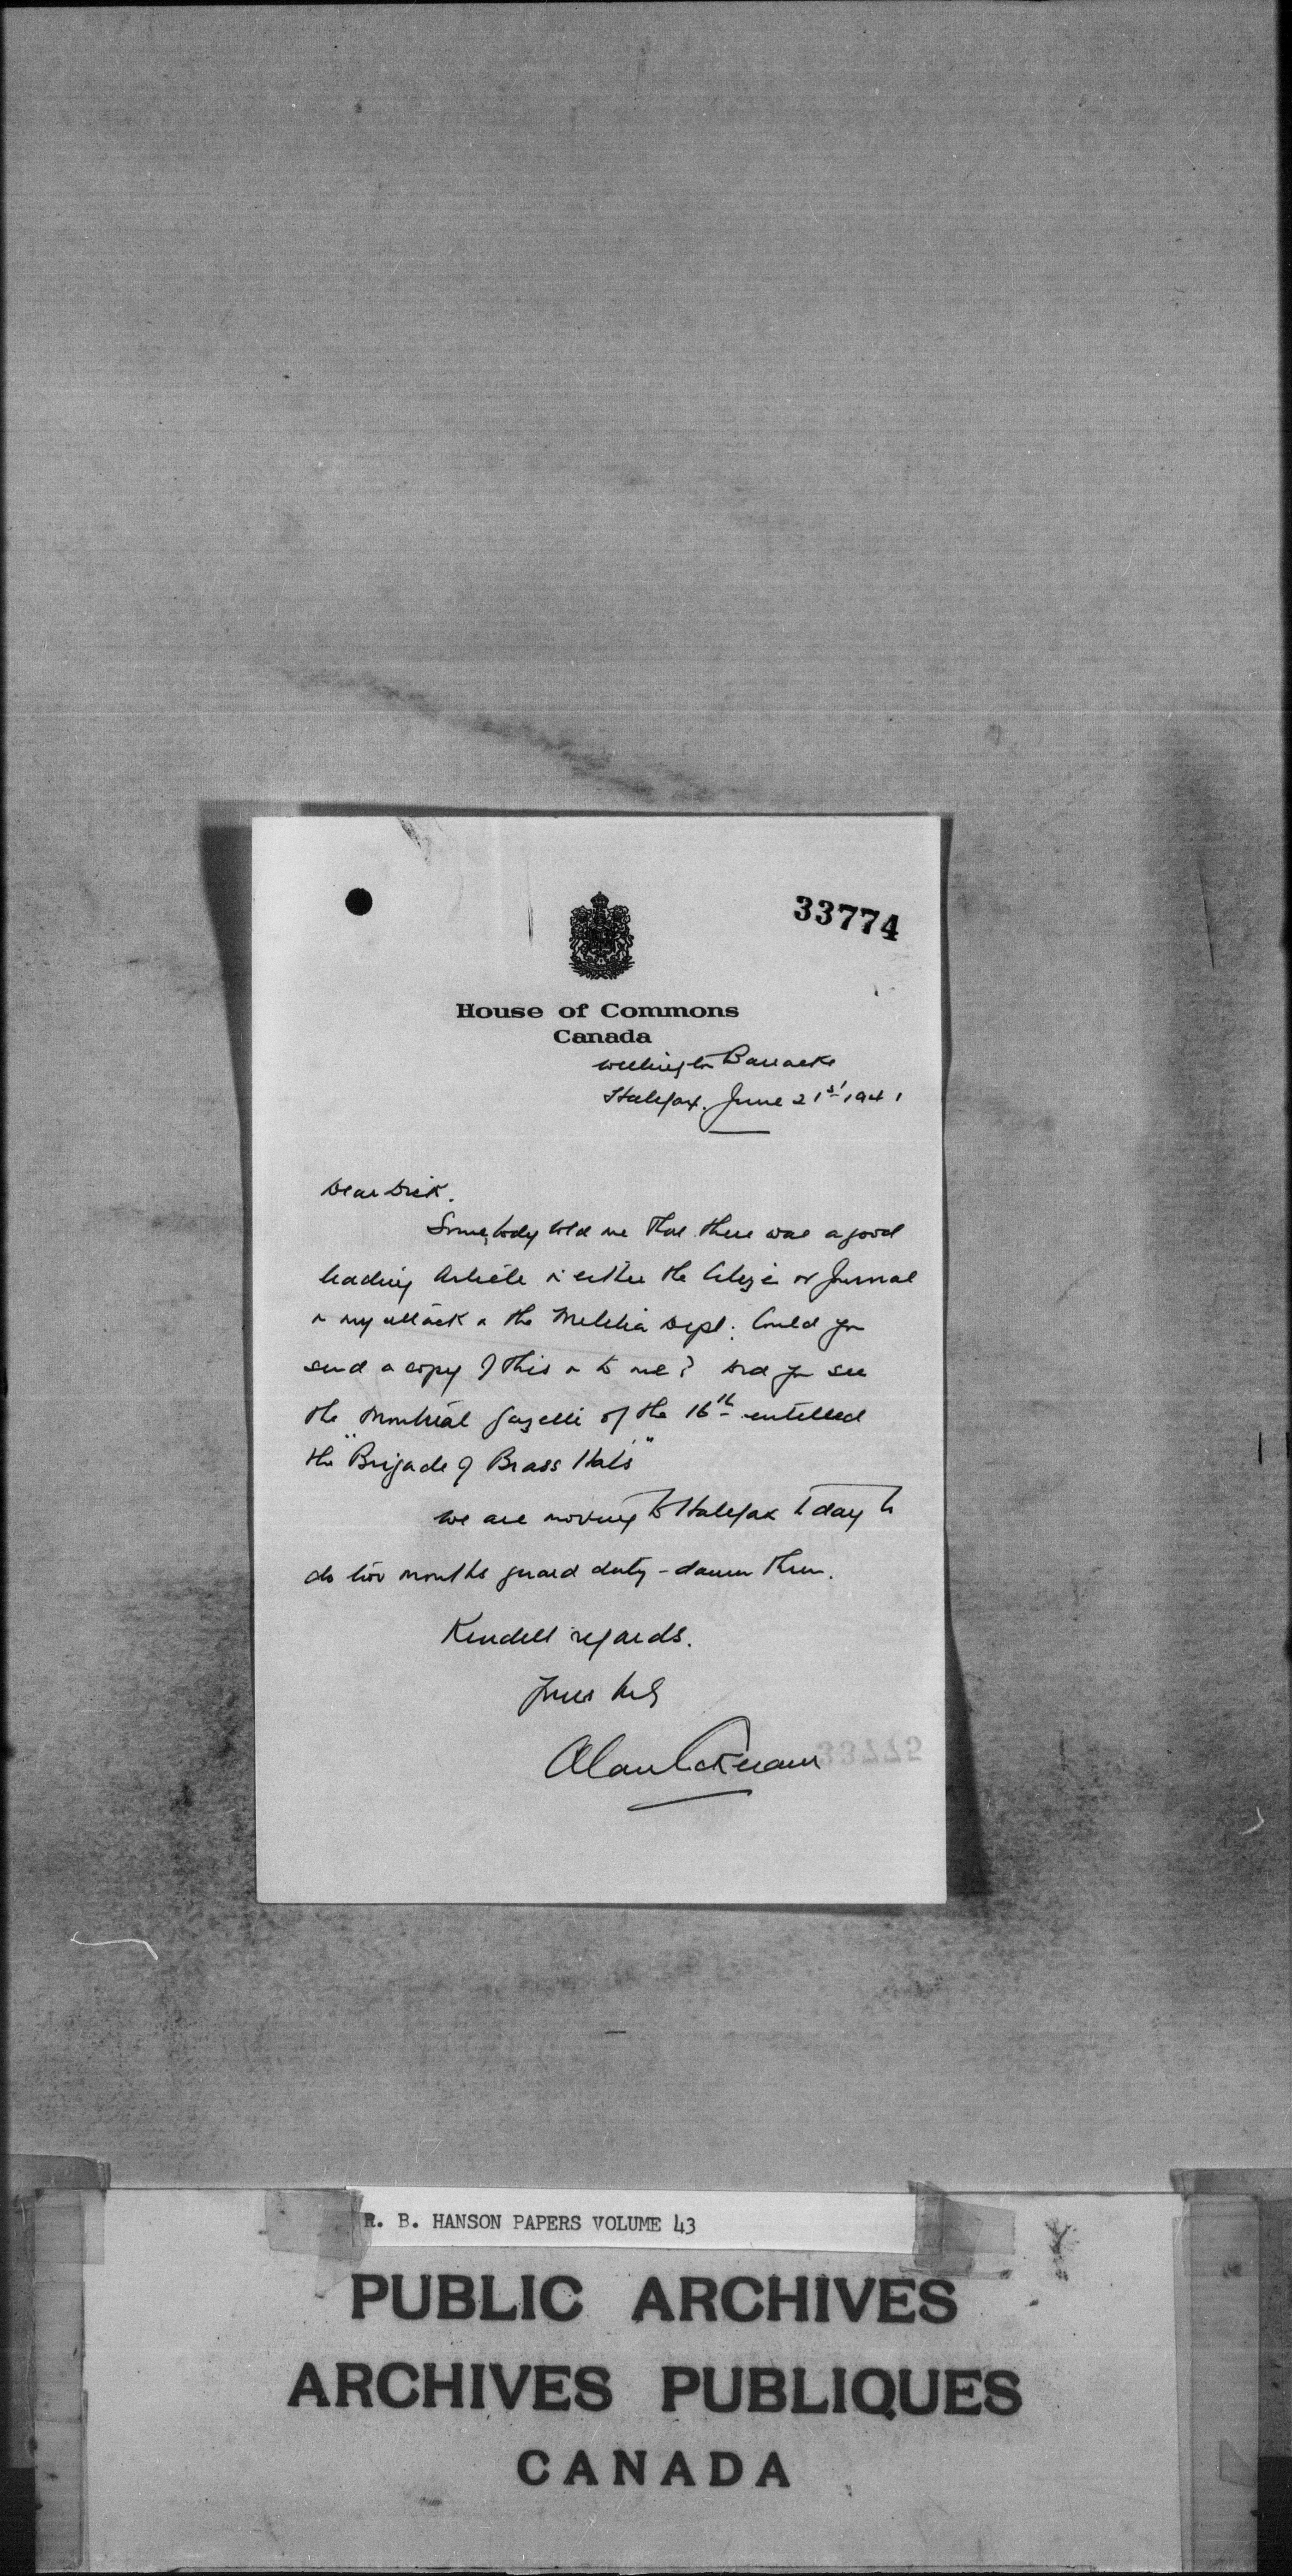 33774
House of Commons
Canada
Wellington Barracks
Halifax. June 21st 1941
Dear Dick.
Somebody told me that there was a good
leading article in either the Citizen or Journal
on my attack on the Militia Dept. Could you
send a copy of this on to me? Did you see
the Montreal Gazette of the 16th entitled
the "Brigade of Brass Hats"
We are moving to Halifax today to
do two months guard duty - damn them.
Kindest regards.
Yours
Alan Cockeram
R. B. HANSON PAPERS VOLUME 43
PUBLIC ARCHIVES
ARCHIVES PUBLIQUES
CANADA